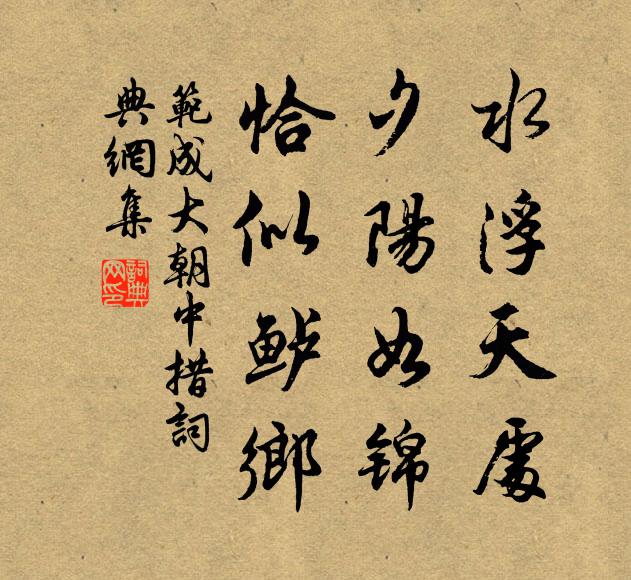 水浮天處
夕陽如錦
恰似鲈鄉
範成大朝中措詞
典網集
詞典
网印